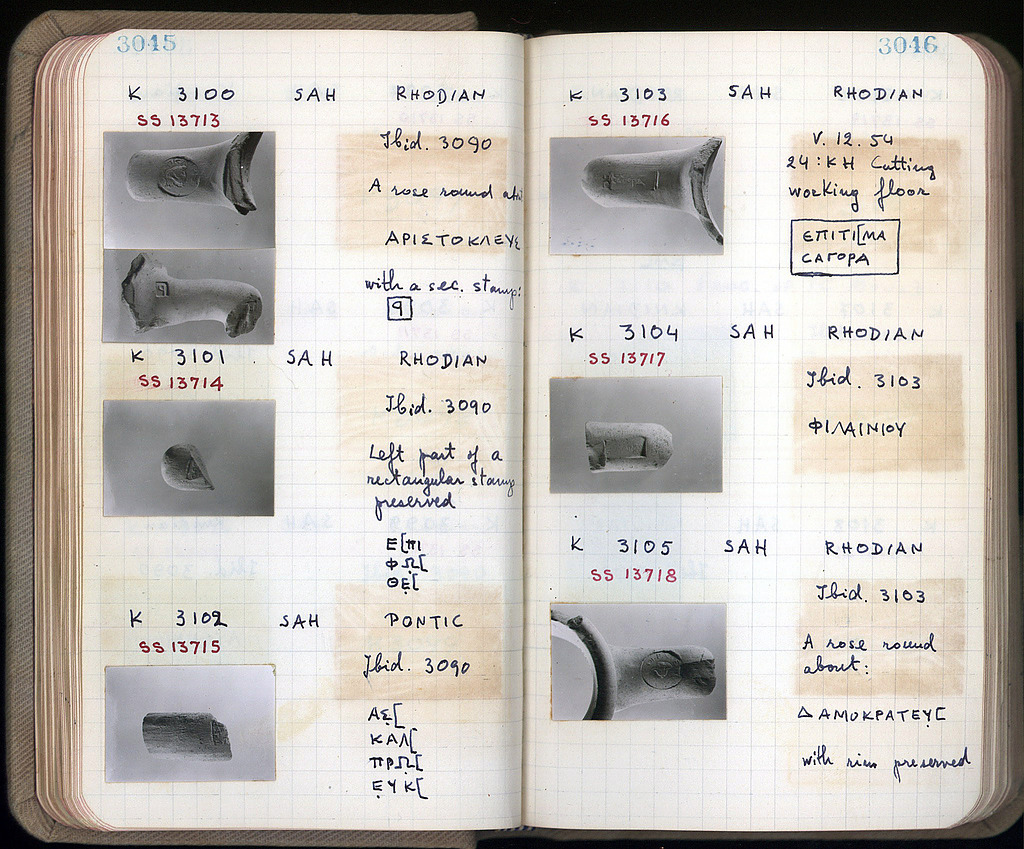 3045
K 3100 SAH RHODIAN
SS 13713
Ibid. 3090
A rose round
ΑΡΙΣΤΟΚΛΕΥΣ
with a sec. stamp:
K 3101 SAH RHODIAN
SS 13714
Ibid. 3090
Left part of a
rectangular stamp
preserved
Ε[πι
ΦΩ̣[
ΘΕ̣[
K 3102 SAH PONTIC
SS 13715
Ibid. 3090
ΑΣ̣[
ΚΑΛ[
ΠΡΩ̣[
Ε̣ΥΚ[
3046
K 3103 SAH RHODIAN
SS 13716
V. 12. 54
24 : KH Cutting
working floor
ЄΠΙΤΙ[ΜΑ
CΑΓΟΡΑ
K 3104 SAH RHODIAN
SS 13717
Ibid. 3103
ΦΙΛΑΙΝΙΟΥ
K 3105 SAH RHODIAN
SS 13718
Ibid. 3103
A rose round
about:
ΔΑΜΟΚΡΑΤΕΥ̣Σ
with rim preserved